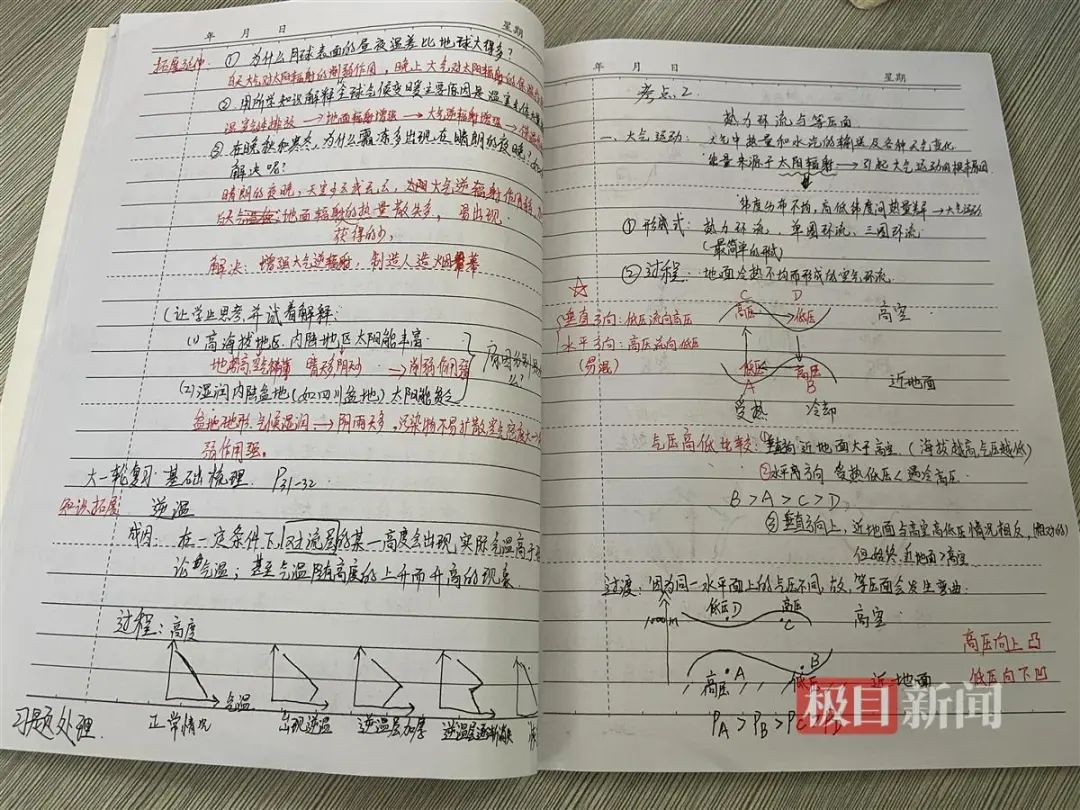 年 月 日 星期
拓展延伸: ① 为什么月球表面的昼夜温差比地球大得多?
白天大气对太阳辐射的削弱作用,晚上大气对太阳辐射的保温
② 用所学知识解释全球气候变暖主要原因是温室气体
温室气体排放 → 地面辐射增强 → 大气逆辐射增强 → 保温
③ 在晚秋和寒冬,为什么霜冻多出现在晴朗的夜晚?
解决呢?
晴朗的夜晚,天空少云或无云,大气逆辐射作用
地面辐射的热量散失多, 易出现
获得的少,
解决: 增强大气逆辐射, 制造人造烟幕
(让学生思考,并试着解释:
(1) 高海拔地区、内陆地区太阳能丰富
地势高空气稀薄 晴天多阴天少 → 削弱作用弱
原因分别是什么?
(2) 湿润内陆盆地(如四川盆地)太阳能贫乏
盆地地形、气候湿润 → 阴雨天多,污染物不易扩散,空气密度大
弱作用强。
大一轮复习: 基础梳理. P31-32
知识拓展 逆温
成因: 在一定条件下,对流层的某一高度会出现实际气温高于理
论气温; 甚至气温随高度的上升而升高的现象.
过程: 高度
气温
正常情况 出现逆温 逆温层加厚 逆温层逐渐消失
习题处理.
年 月 日 星期
考点2.
热力环流与等压面
一、大气运动: 大气中热量和水汽的输送及各种天气变化
能量来源于太阳辐射 → 引起大气运动的根本原因
纬度分布不均,高低纬度间热量差异 → 大气运动
① 形式: 热力环流, 单圈环流, 三圈环流.
(最简单的形式)
② 过程: 地面冷热不均而形成的空气环流.
☆ C D
垂直方向: 低压流向高压 高压 低压 高空
水平方向: 高压流向低压
(易混) 低压 高压
A B 近地面
受热 冷却
气压高低比较: ① 垂直方向 近地面大于高空. (海拔越高,气压越低)
② 水平方向 受热低压 < 遇冷高压
B > A > C > D
③ 垂直方向上, 近地面与高空高低压情况相反, (相对的)
但始终: 近地面 > 高空
过渡: 因为同一水平面上的气压不同, 故, 等压面会发生弯曲:
1000m 低压D 高压 C 高空
高压向上凸
高压 A B 低压 近地面 低压向下凹
PA > PB > PC > PD
极目新闻